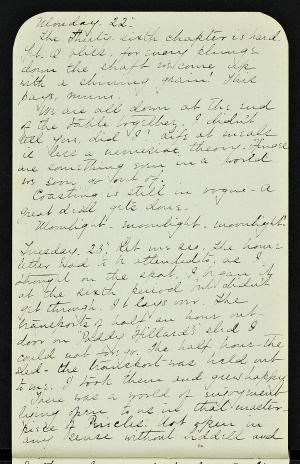 Monday. 22.
The thirty-sixth chapter is hard
down the shaft
with a shining grain! This
pays, mum.
We are all down at the end
of the table together. I didn't
tell you, did I? Life at meals
is less a nemesise theory. Things
are something even in a world
we soon go out of.
Coasting is still in vogue - a
great deal gets done.
Moonlight - moonlight - moonlight!
Tuesday. 23. Let me see. The home
letter had to be attended to, as I
thought on the skat. I began it
at the sixth period but didn't
get through. It lays over. The
transports of half an hour out-
door on Paddy Hillard's sled I
could not forgo. The half hour - the
sled - the transport was held out
to me. I took them and grew happy.
There was a world of enjoyment
lying open to us in that master-
piece of Not open in
any sense without and